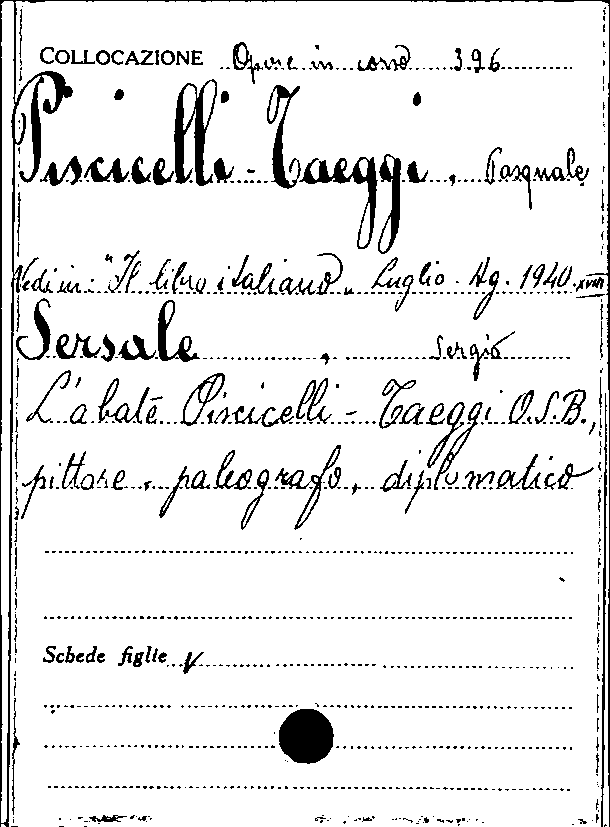 COLLOCAZIONE Opere in corso 396
Piscicelli-Taeggi, Pasquale
Vedi in: "Il libro italiano" Luglio-Ag. 1940 XVIII
Sersale, Sergio
L'abate Piscicelli-Taeggi O.S.B.,
pittore, paleografo, diplomatico
Schede figlie V